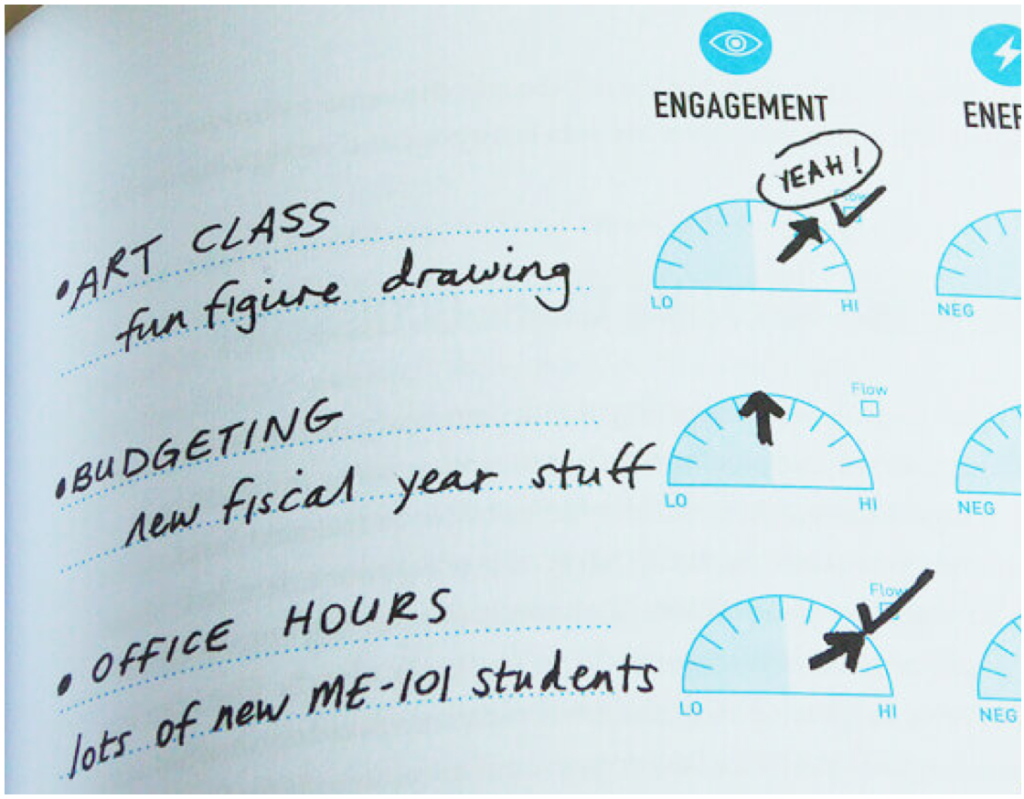 ENGAGEMENT
ENER
YEAH!
Flow
• ART CLASS
fun figure drawing
LO HI
NEG
Flow
• BUDGETING
new fiscal year stuff
LO HI
NEG
Flow
• OFFICE HOURS
lots of new ME-101 students
LO HI
NEG